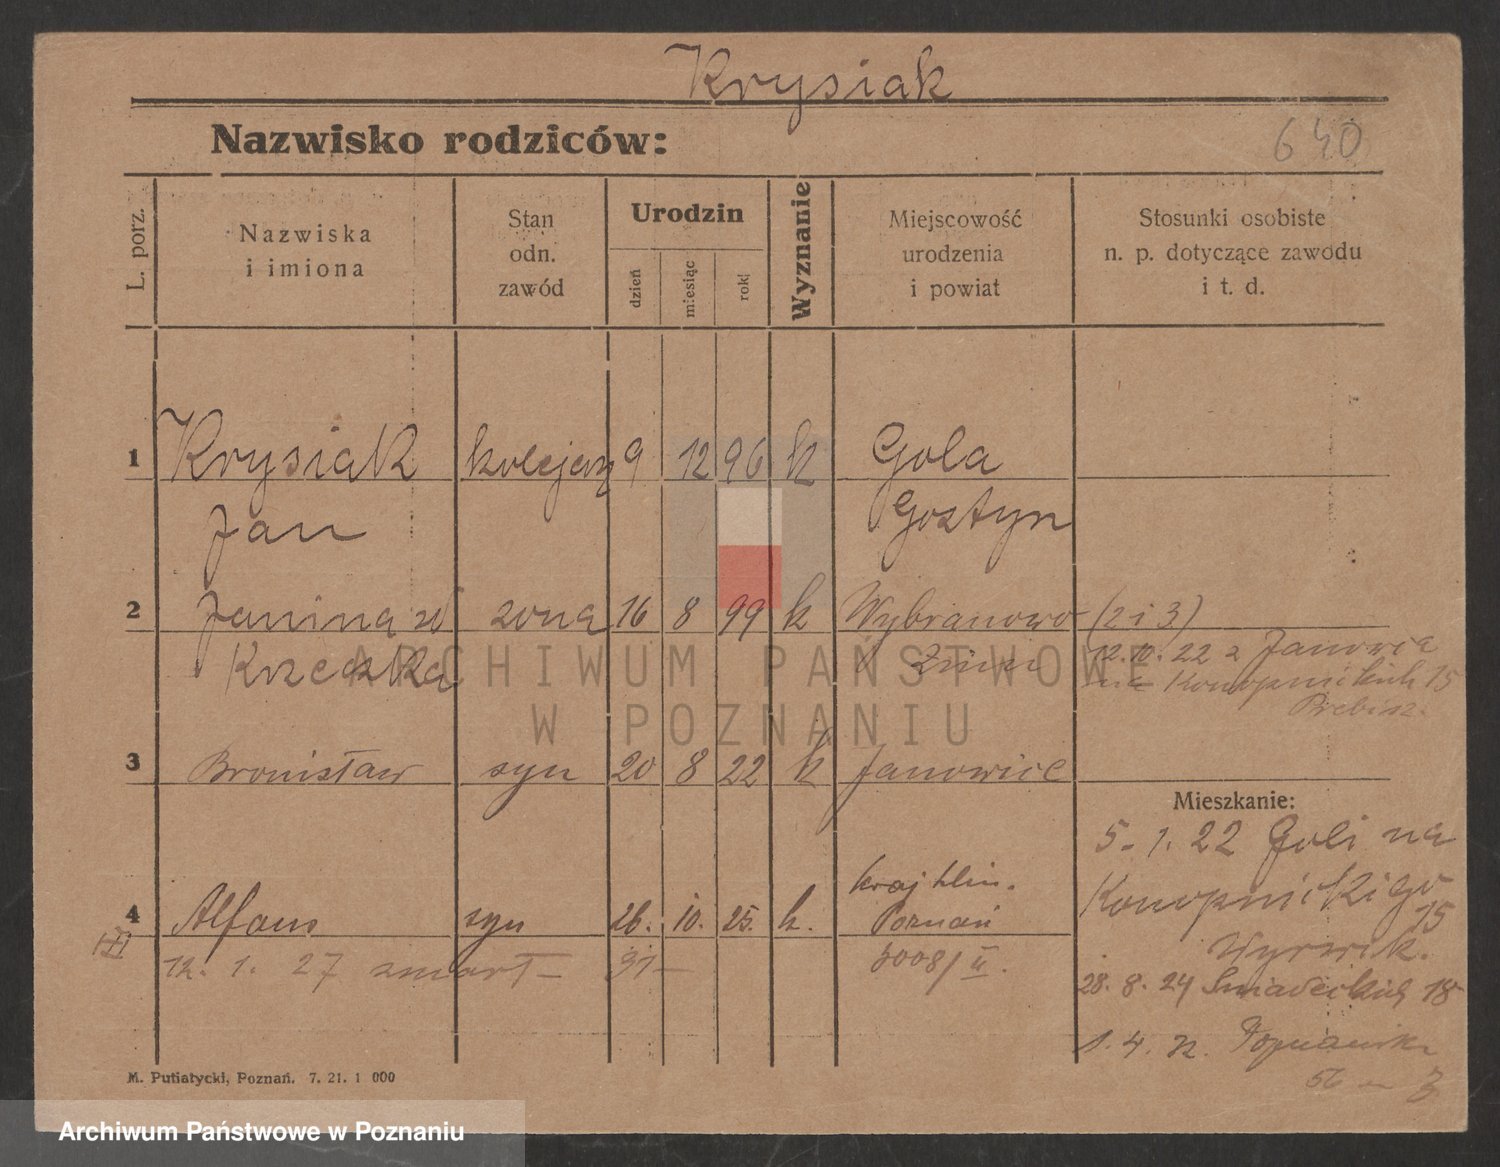 Krysiak
Nazwisko rodziców:
640
L. porz.
Nazwiska
i imiona
Stan
odn.
zawód
Urodzin
dzień
miesiąc
rok
Wyznanie
Miejscowość
urodzenia
i powiat
Stosunki osobiste
n. p. dotyczące zawodu
i t. d.
1 Krysiak kolejarz 9 12 96 k Gola
Jan Gostyn
2 Janina zd żona 16 8 99 k Wybranowo (2 i 3)
12.10.22 z Janowca
na Konopnickich 15
3 Bronisław syn 20 8 22 k Janowice
Mieszkanie:
5. 1. 22 Goli na
Konopnickigo
15
4 Alfons syn 26. 10. 25. k. Poznań
12. 1. 27 zmarł
28. 8. 24 Sniadeckich 18
1. 4. Poznańska
56 3
M. Putiatycki, Poznań. 7. 21. 1 000
ARCHIWUM PAŃSTWOWE
W POZNANIU
Archiwum Państwowe w Poznaniu